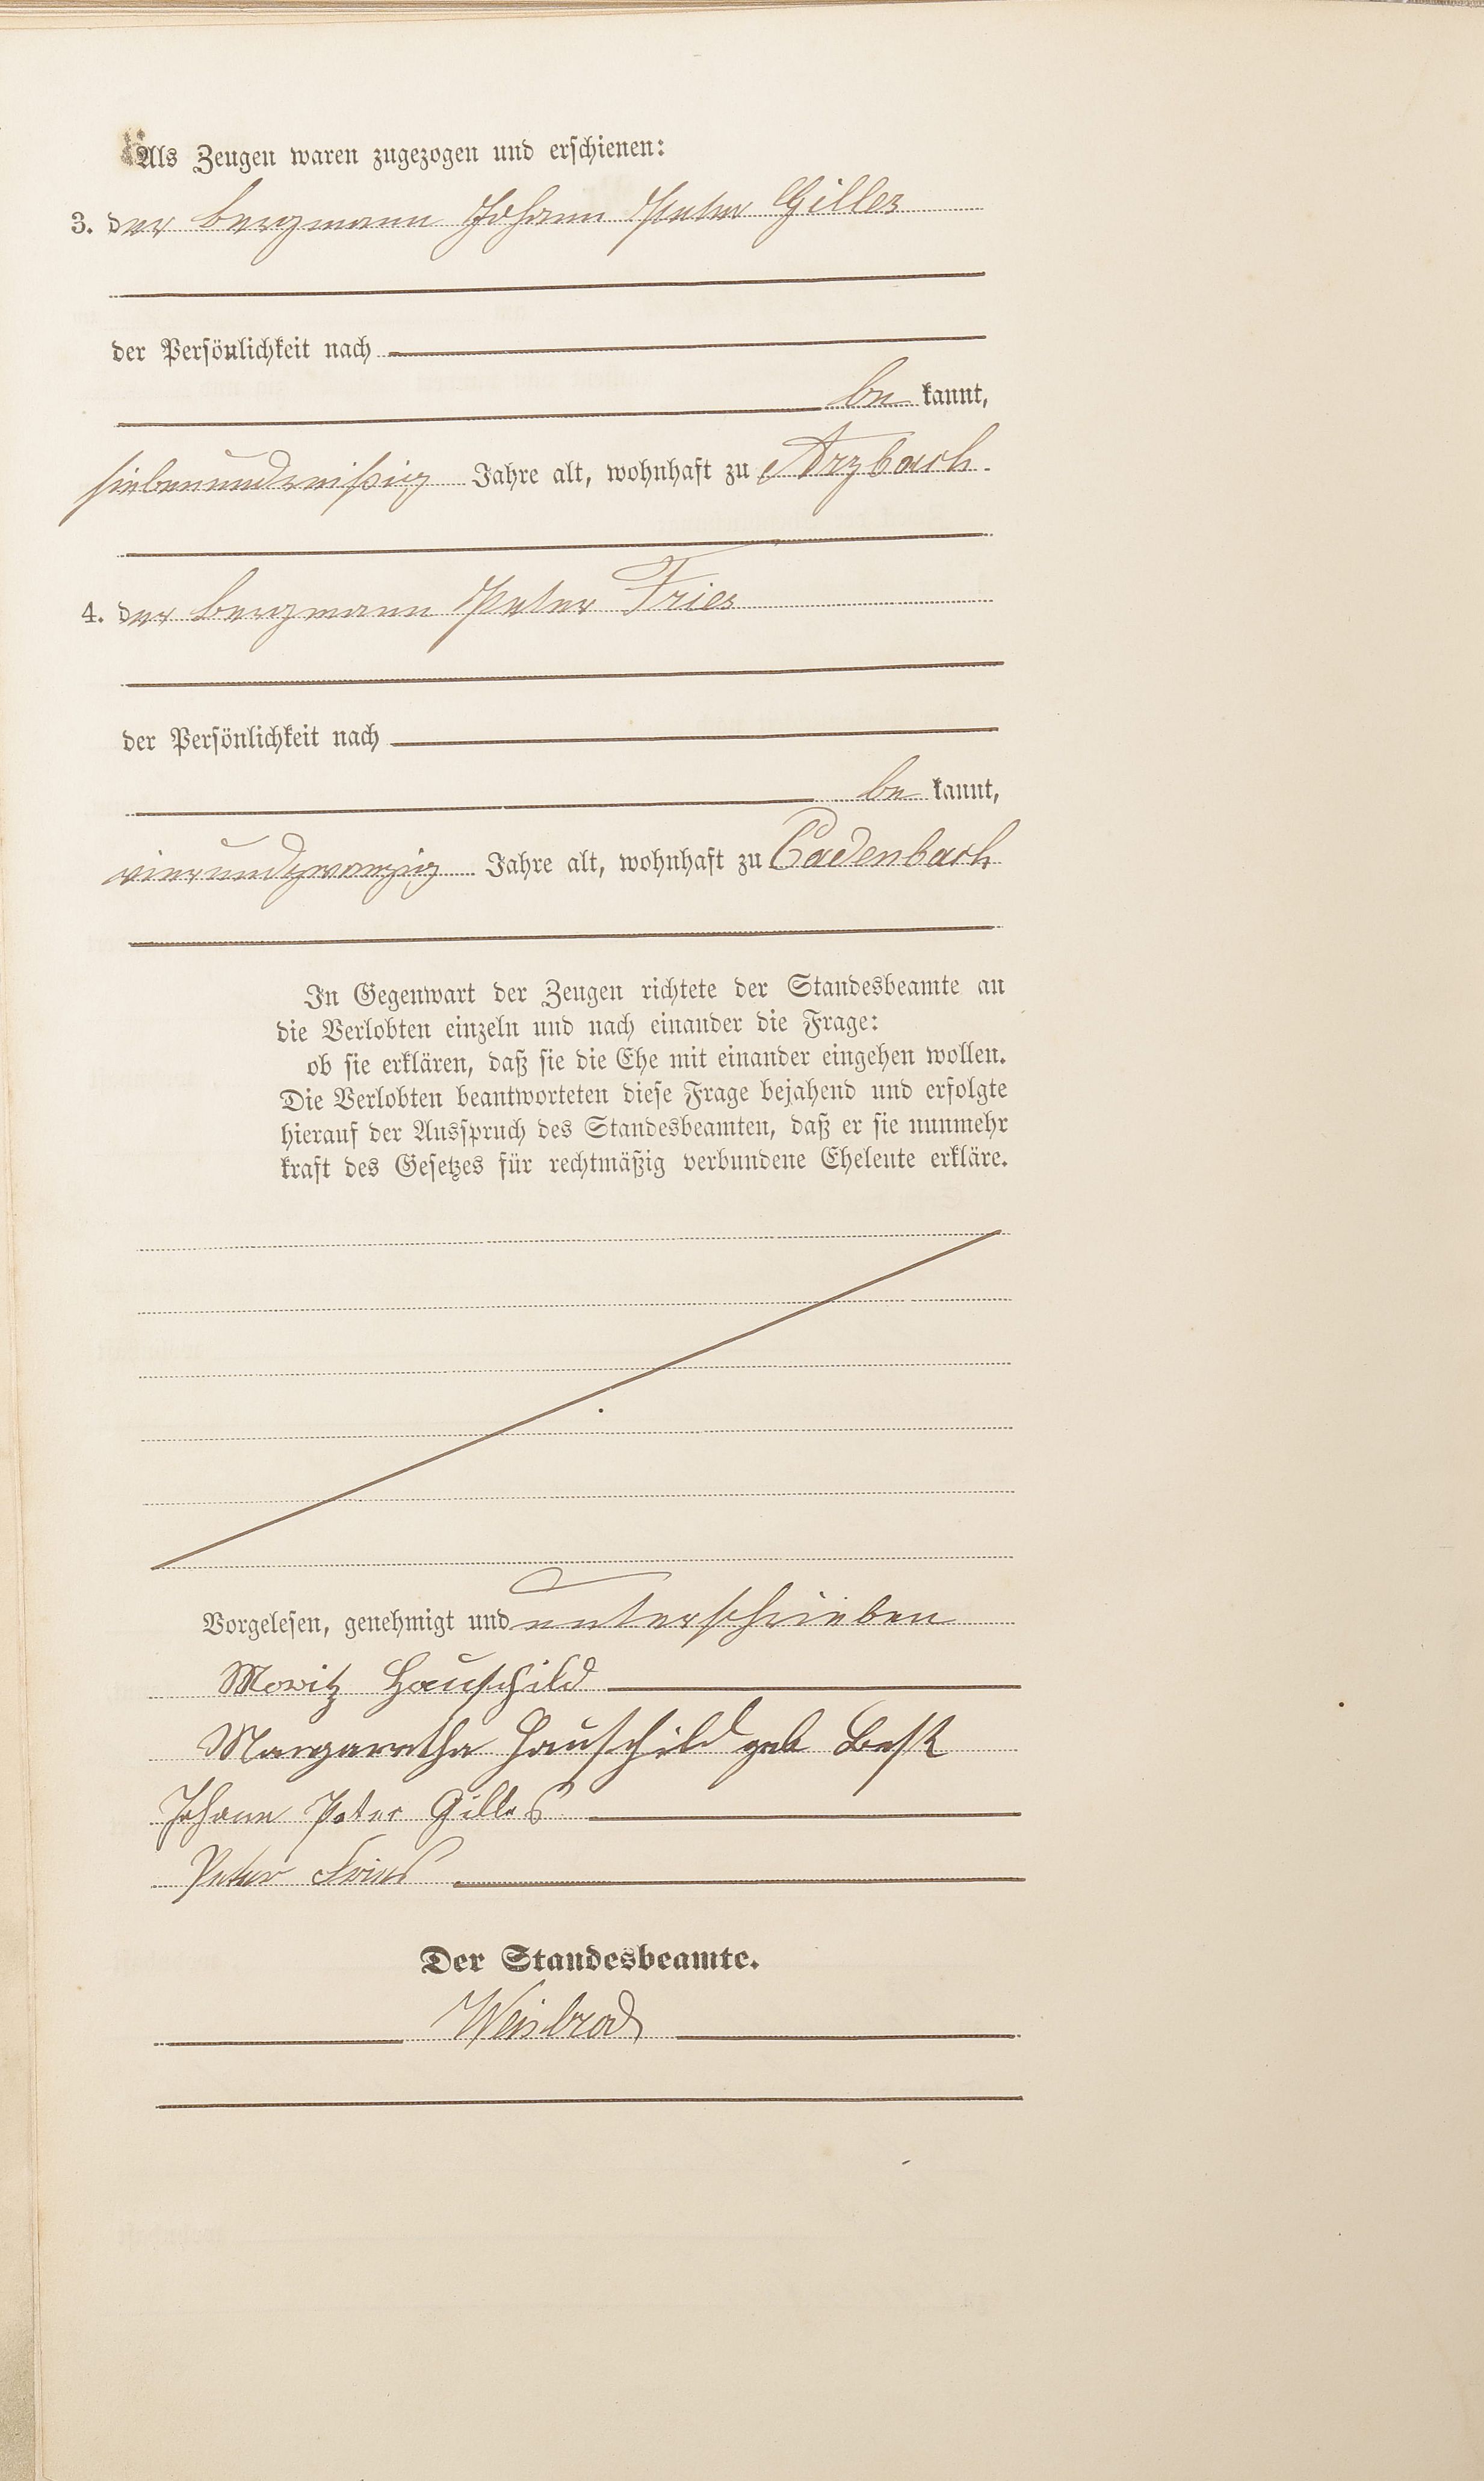 Als Zeugen waren zugezogen und erschienen:
3. der Bergmann Johann Peter Gilles
der Persönlichkeit nach
be kannt,
siebenunddreißig Jahre alt, wohnhaft zu Arzbach
4. der Bergmann Peter Fries
der Persönlichkeit nach
be kannt,
vierundzwanzig Jahre alt, wohnhaft zu Cadenbach
In Gegenwart der Zeugen richtete der Standesbeamte an
die Verlobten einzeln und nach einander die Frage:
ob sie erklären, daß sie die Ehe mit einander eingehen wollen.
Die Verlobten beantworteten diese Frage bejahend und erfolgte
hierauf der Ausspruch des Standesbeamten, daß er sie nunmehr
kraft des Gesetzes für rechtmäßig verbundene Eheleute erkläre.
Vorgelesen, genehmigt und unterschrieben
Moritz Hauschild
Margaretha Hauschild geb Best
Johann Peter Gilles
Peter Fries
Der Standesbeamte.
Weisbrod